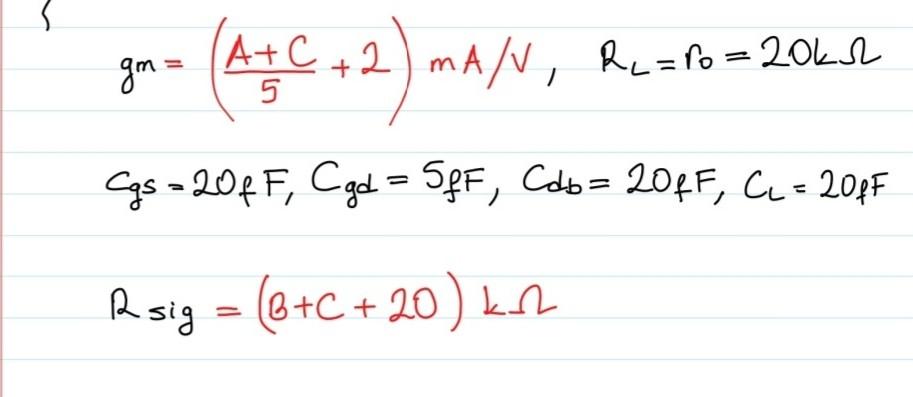 gm = (A+C/5 + 2) mA/V, RL = ro = 20kΩ
Cgs = 20fF, Cgd = 5fF, Cdb = 20fF, CL = 20fF
Rsig = (B+C+20) kΩ